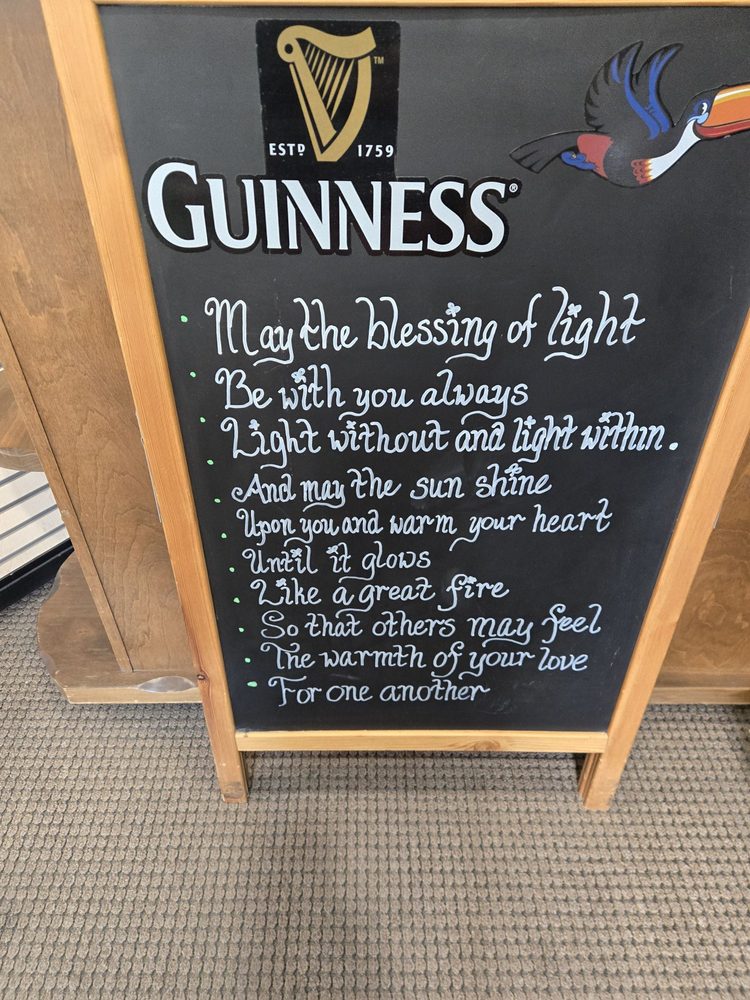 TM
ESTD 1759
GUINNESS®
May the blessing of light
Be with you always
Light without and light within.
And may the sun shine
Upon you and warm your heart
Until it glows
Like a great fire
So that others may feel
The warmth of your love
For one another